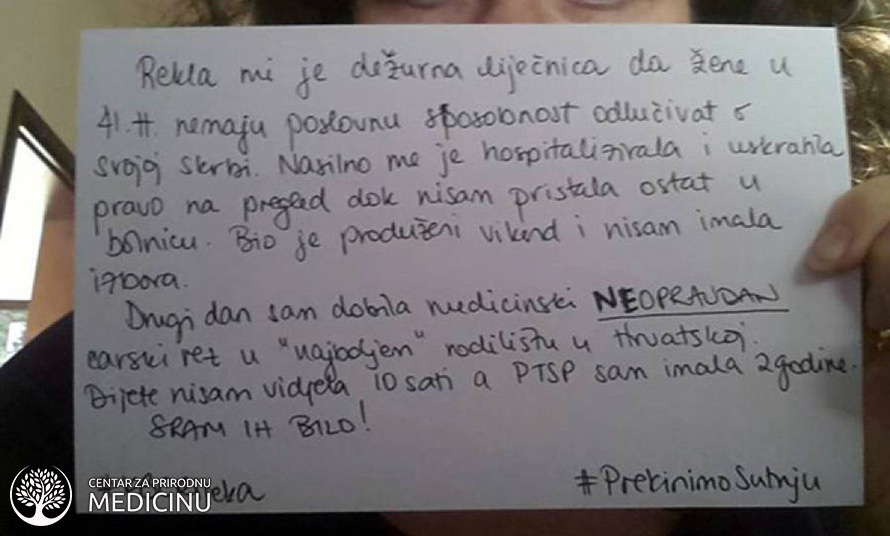 Rekla mi je dežurna liječnica da žene u
41.tt. nemaju poslovnu sposobnost odlučivat o
svojoj skrbi. Nasilno me je hospitalizirala i uskratila
pravo na pregled dok nisam pristala ostat u
bolnicu. Bio je produženi vikend i nisam imala
izbora.
Drugi dan sam dobila medicinski NEOPRAVDAN
carski rez u "najboljem" rodilištu u Hrvatskoj.
Dijete nisam vidjela 10 sati a PTSP sam imala 2 godine.
SRAM IH BILO!
#PrekinimoŠutnju
CENTAR ZA PRIRODNU
MEDICINU